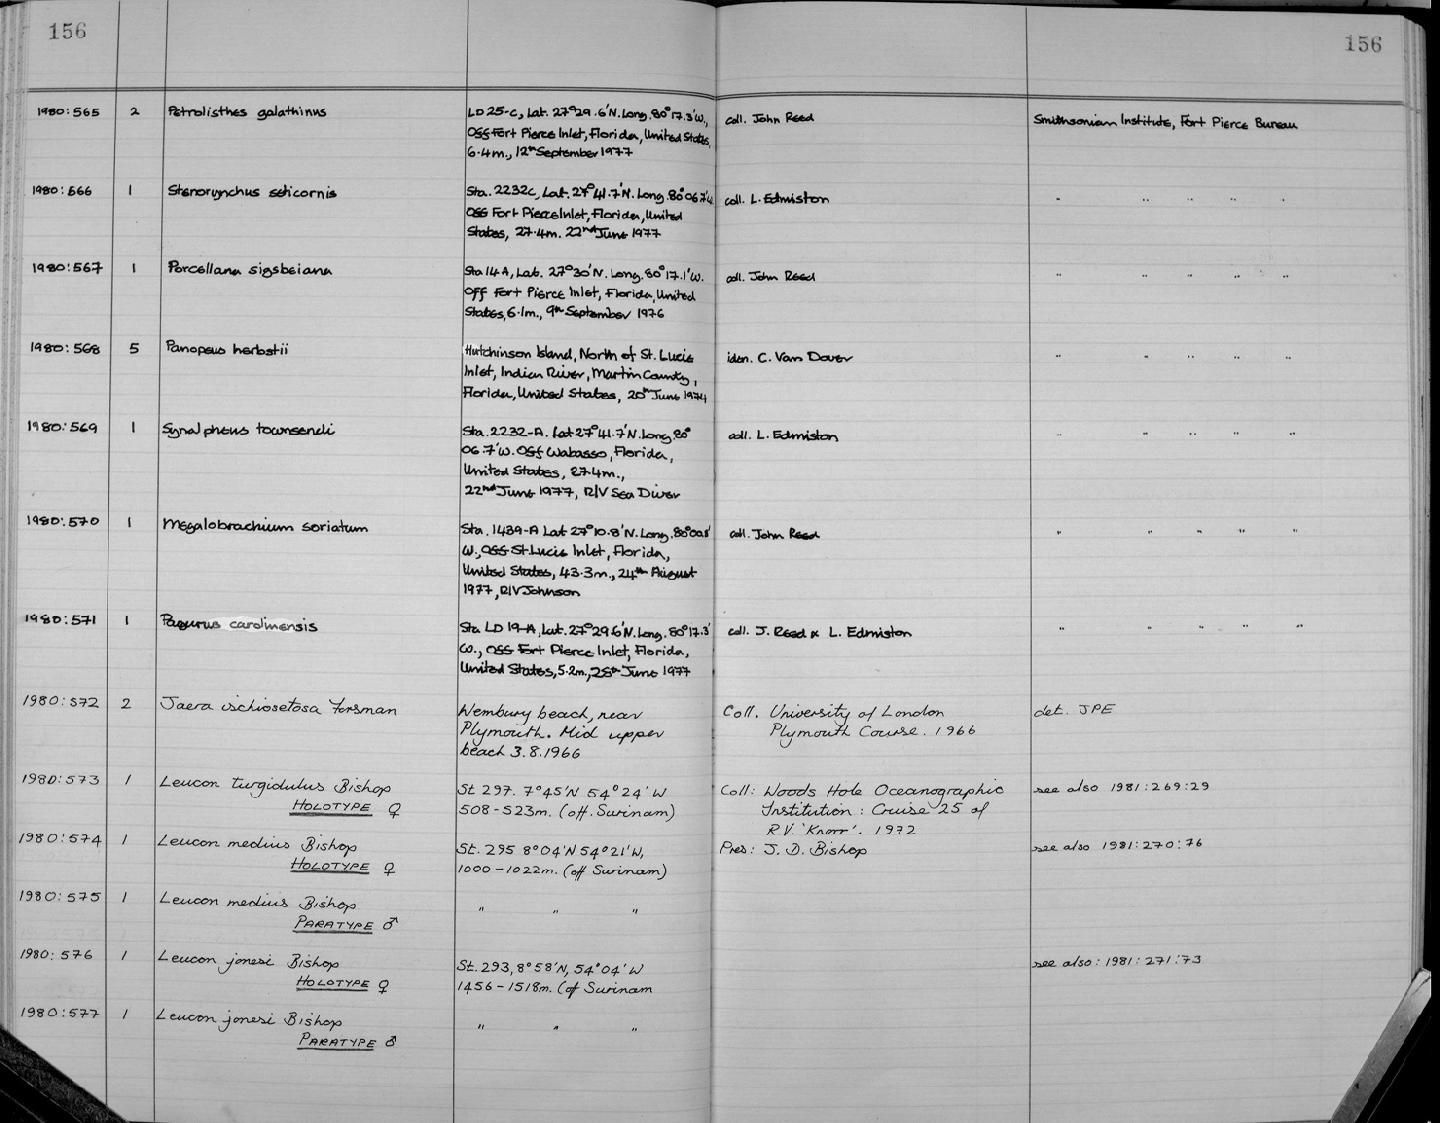 156
156
1980:565 2 Petrolisthes galathinus LD 25-C, Lat. 27°29.6'N. Long. 80°17.3'W., coll. John Reed Smithsonian Institute, Fort Pierce Bureau
Off Fort Pierce Inlet, Florida, United States,
6.4m., 12th September 1977
1980:566 1 Stenorynchus seticornis Sta. 2232C, Lat. 27°41.7'N. Long. 80°06.7'W. coll. L. Edmiston " " " " "
Off Fort Pierce Inlet, Florida, United
States, 27.4m. 22nd June 1977
1980:567 1 Porcellana sigsbeiana Sta 14A, Lat. 27°30'N. Long. 80°17.1'W. coll. John Reed " " " " "
Off Fort Pierce Inlet, Florida, United
States, 6.1m., 9th September 1976
1980:568 5 Panopeus herbstii Hutchinson Island, North of St. Lucie iden. C. Van Dover " " " " "
Inlet, Indian River, Martin County,
Florida, United States, 20th June 1974
1980:569 1 Synalpheus townsendi Sta. 2232-A. Lat 27°41.7'N. Long. 80° coll. L. Edmiston " " " " "
06.7'W. Off Wabasso, Florida,
United States, 27.4m.,
22nd June 1977, R/V Sea Diver
1980:570 1 Megalobrachium soriatum Sta. 1439-A Lat 27°10.8'N. Long. 80°00.8' coll. John Reed " " " " "
W., Off St Lucie Inlet, Florida,
United States, 43.3m., 24th August
1977, R/V Johnson
1980:571 1 Pagurus carolinensis Sta LD 19-A, Lat. 27°29.6'N. Long. 80°17.3' coll. J. Reed & L. Edmiston " " " " "
W., Off Fort Pierce Inlet, Florida,
United States, 5.2m., 28th June 1977
1980:572 2 Jaera ischiosetosa Forsman Wembury beach, near Coll. University of London det. JPE
Plymouth. Mid upper Plymouth Course. 1966
beach 3.8.1966
1980:573 1 Leucon turgidulus Bishop St 297. 7°45'N 54°24'W Coll: Woods Hole Oceanographic see also 1981:269:29
HOLOTYPE ♀ 508-523m. (off. Surinam) Institution: Cruise 25 of
R.V. 'Knorr'. 1972
1980:574 1 Leucon medius Bishop St. 295 8°04'N 54°21'W, Pres: J. D. Bishop see also 1981:270:76
HOLOTYPE ♀ 1000-1022m. (off Surinam)
1980:575 1 Leucon medius Bishop " " "
PARATYPE ♂
1980:576 1 Leucon jonesi Bishop St. 293, 8°58'N, 54°04'W see also: 1981:271:73
HOLOTYPE ♀ 1456-1518m. (of Surinam
1980:577 1 Leucon jonesi Bishop " " "
PARATYPE ♂